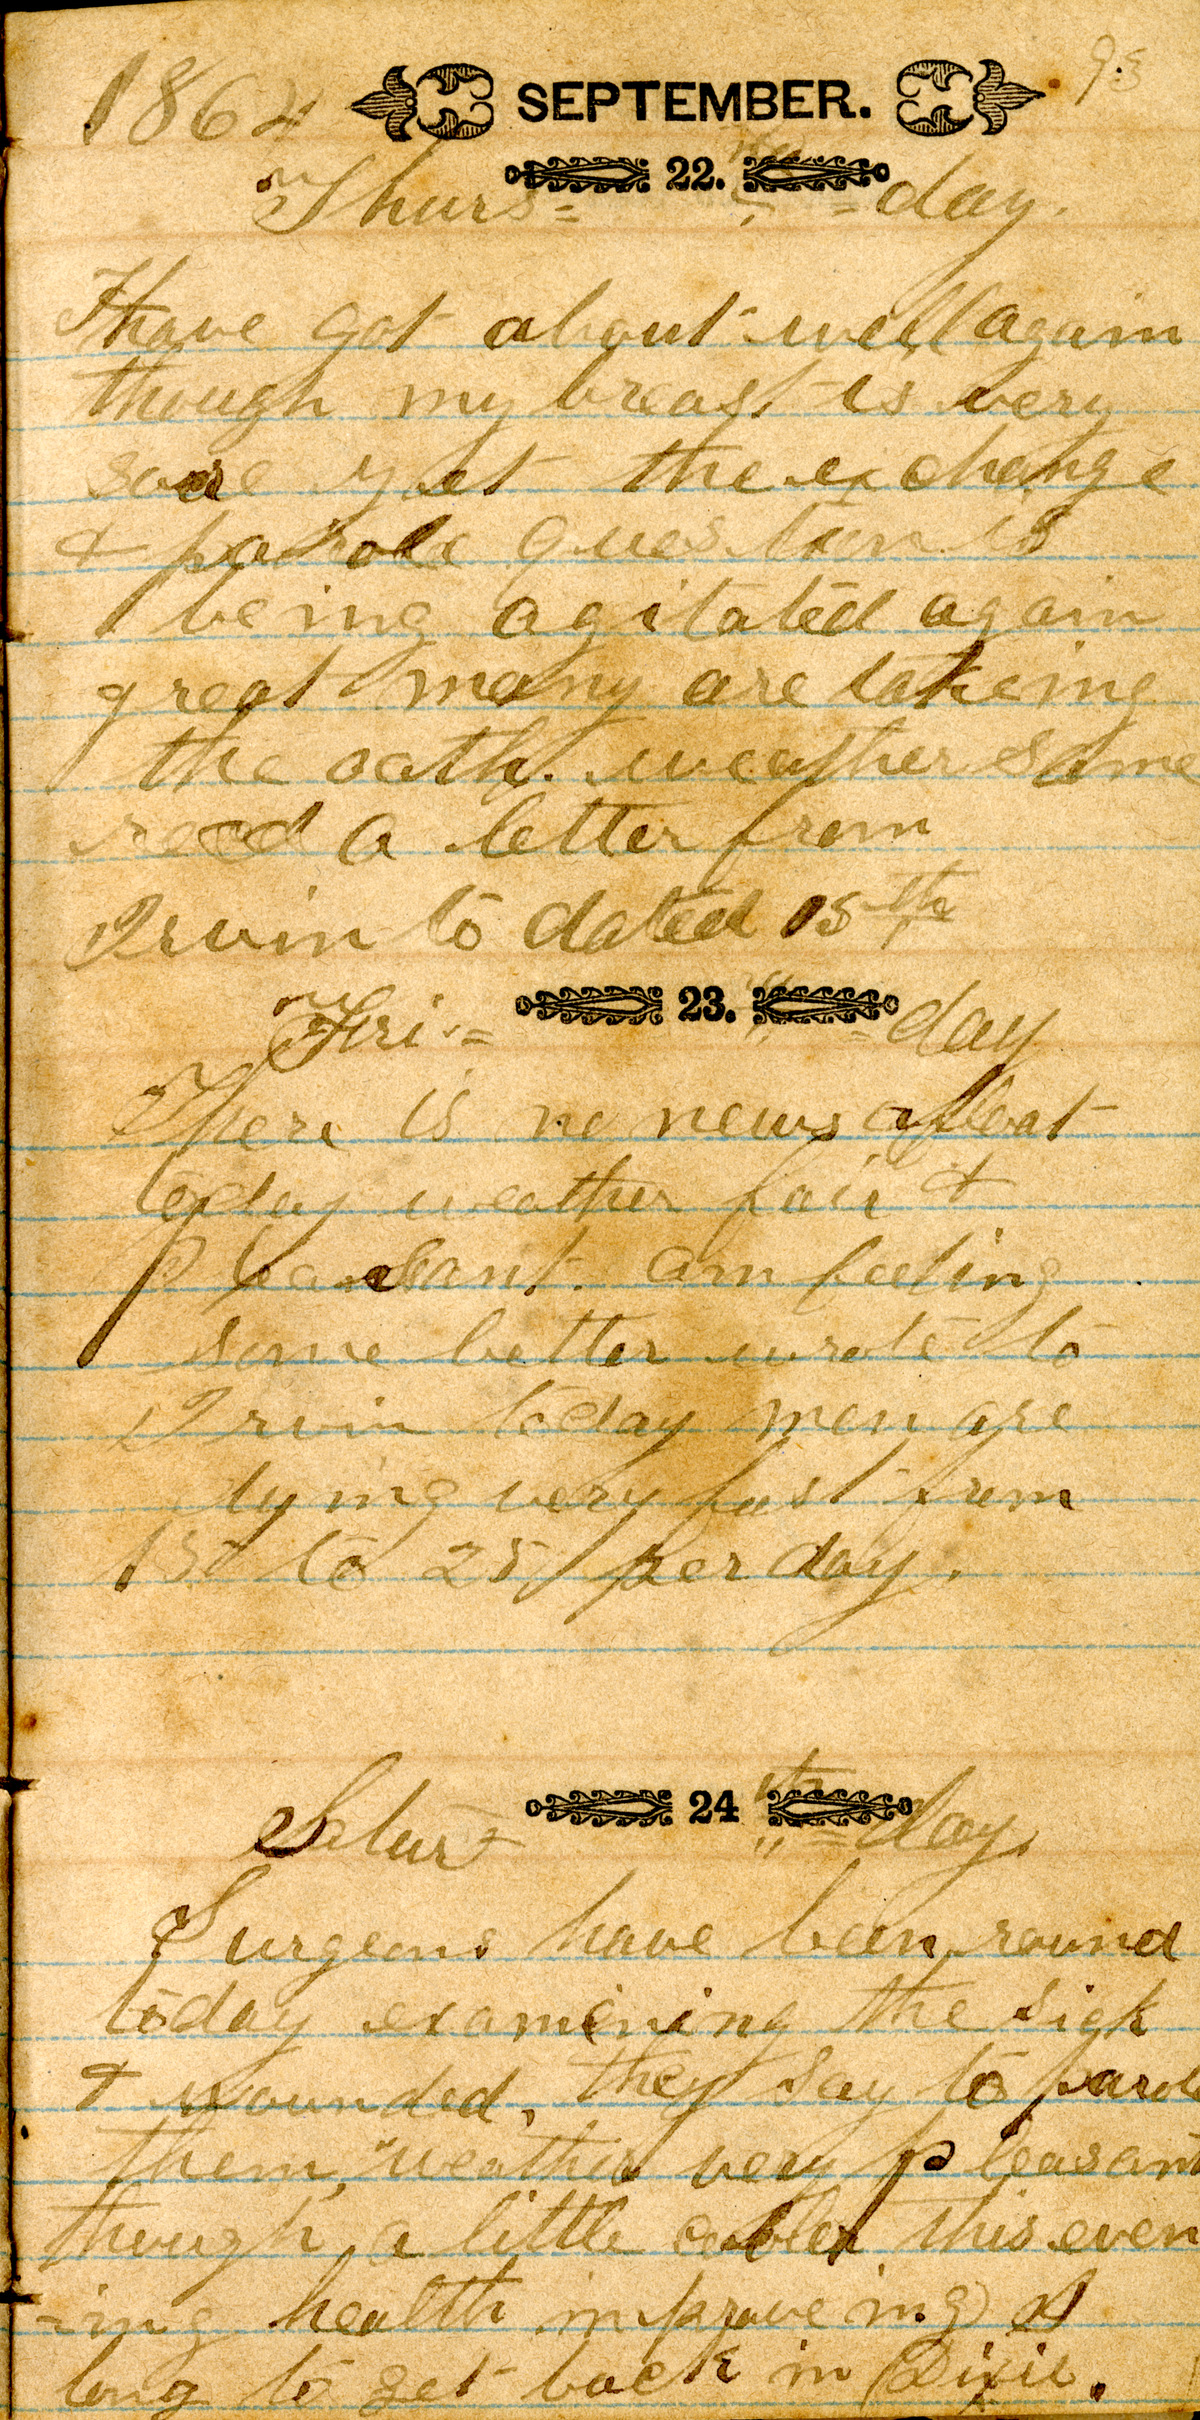 1864 SEPTEMBER. 93
Thurs= 22. =day.
I have got about well again
though my breast is very
sore yet the exchange
& parole question is
being agitated again
great many are takeing
the oath. weather same
recd a letter from
Irvin to dated 15th
Fri.= 23. =day
There is no news afloat
today weather fair &
pleasant. am feeling
some better wrote to
Irvin today men are
dying very fast from
15 to 25 per day.
Satur= 24th =day.
Surgeons have been round
today examining the sick
& wounded, they say to parole
them, weather very pleasant
though a little cooler this even
-ing health improveing I
long to get back in Dixie.